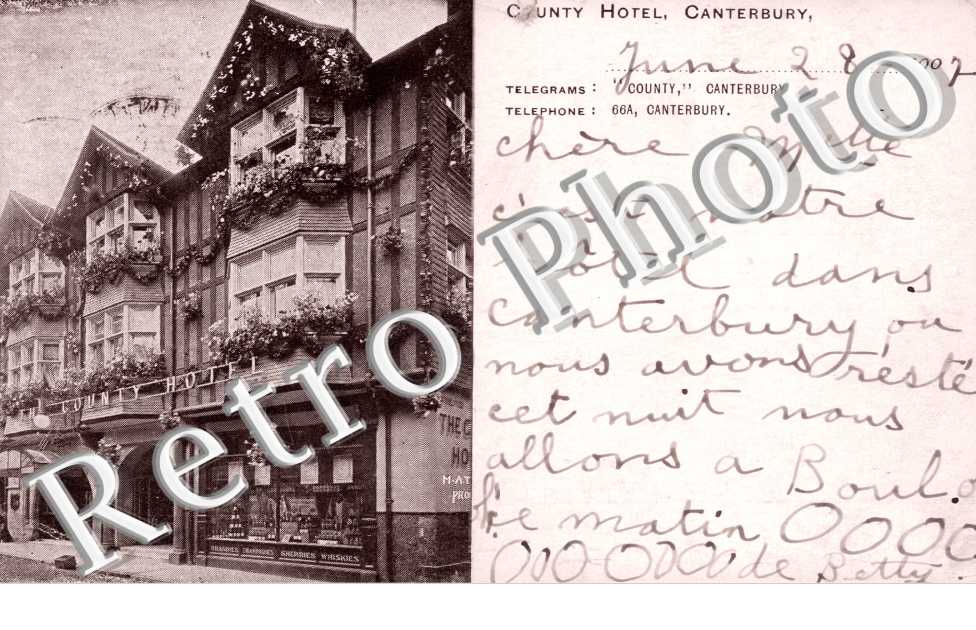 THE COUNTY HOTEL
THE C
HO
M-AT
PRO
BRANDIES CHAMPAGNES SHERRIES WHISKIES
COUNTY HOTEL, CANTERBURY,
June 28 1907
TELEGRAMS: "COUNTY," CANTERBURY
TELEPHONE: 66A, CANTERBURY.
chère Mlle
c'est notre
hôtel dans
Canterbury ou
nous avons resté
cet nuit nous
allons a Boulo
ke matin OOOO
OOOOOOO de Betty.
Retro Photo